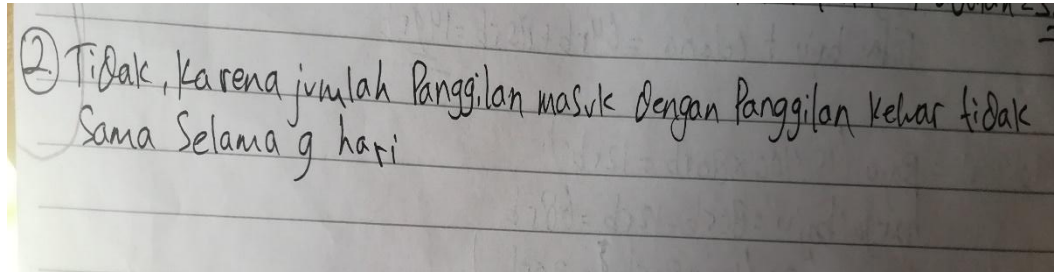 ② Tidak, karena jumlah Panggilan masuk dengan Panggilan keluar tidak
Sama Selama 9 hari